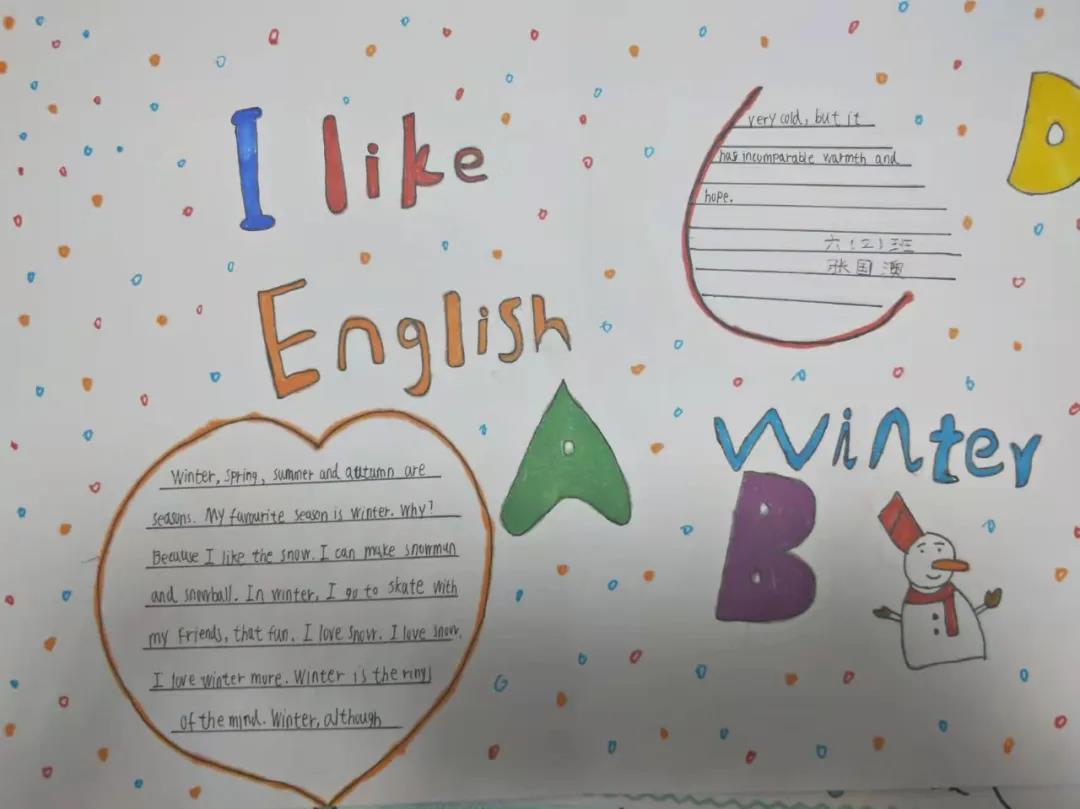 I like
English
Winter, spring, summer and autumn are
seasons. My favourite season is winter. Why?
Because I like the snow. I can make snowman
and snowball. In winter, I go to skate with
my Friends, that fun. I love snow. I love snow.
I love winter more. Winter is the
of the mind. Winter, although
very cold, but it
has incomparable warmth and
hope.
六(2)班
张国
Winter
A
B
D